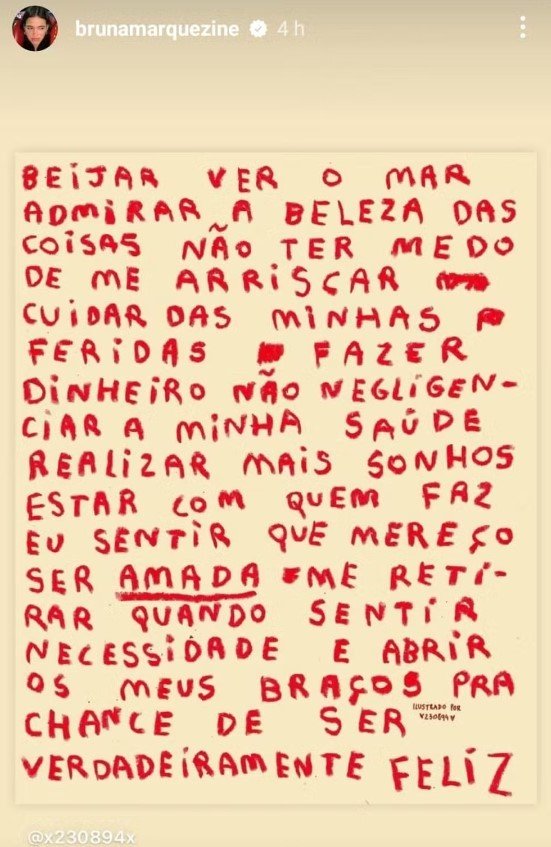 brunamarquezine 4 h
BEIJAR VER O MAR
ADMIRAR A BELEZA DAS
COISAS NÃO TER MEDO
DE ME ARRISCAR
CUIDAR DAS MINHAS
FERIDAS FAZER
DINHEIRO NÃO NEGLIGEN-
CIAR A MINHA SAÚDE
REALIZAR MAIS SONHOS
ESTAR COM QUEM FAZ
EU SENTIR QUE MEREÇO
SER AMADA ME RETI-
RAR QUANDO SENTIR
NECESSIDADE E ABRIR
OS MEUS BRAÇOS PRA
CHANCE DE SER
ILUSTRADO POR
V230894V
VERDADEIRAMENTE FELIZ
@x230894x